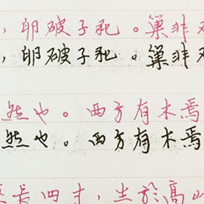 ，卵破子死。巢非不
，卵破子死。巢非不
然也。西方有木焉
然也。西方有木焉
莖長四寸，生於高山